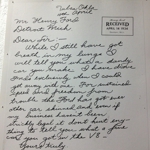 Tulsa, Okla
10th April
Mr. Henry Ford
Detroit Mich
RECEIVED
APR 13 1934
Dear Sir:-
While I still have got
breath in my lungs I
will tell you what a dandy
car you make. I have drove
Fords exclusively when I could
get away with one. For sustained
speed and freedom from
trouble the Ford has got ever
other car skinned and even if
my business hasen't been
strickly legal it don't hurt eny
thing to tell you what a fine
car you got in the V8.
Yours truly